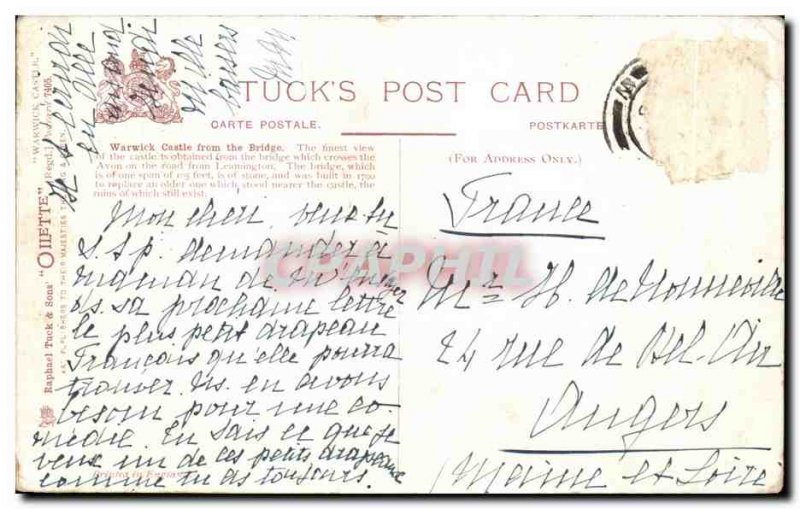 TUCK'S POST CARD
CARTE POSTALE.
POSTKARTE
(FOR ADDRESS ONLY.)
Warwick Castle from the Bridge. The finest view
of the castle is obtained from the bridge which crosses the
Avon on the road from Leamington. The bridge, which
is of one span of 105 feet, is of stone, and was built in 1790
to replace an older one which stood nearer the castle, the
ruins of which still exist.
Mon chéri, veux tu
s.t.p. demander à
maman de m'envoyer
ds. sa prochaine lettre
le plus petit drapeau
Français qu'elle pourra
trouver. Ns. en avons
besoin pour une co-
médie. Tu sais ce que je
veux un de ces petits drapeaux
comme tu as toujours.
Mille
baisers
France
Mr H. de
24 rue de Bel Air
Angers
(Maine et Loire
Raphael Tuck & Sons' "OILETTE" [Regd.] Postcard 7405.
"WARWICK CASTLE."
ART PUBLISHERS TO THEIR MAJESTIES THE KING & QUEEN.
Printed in England
CPAPHIL